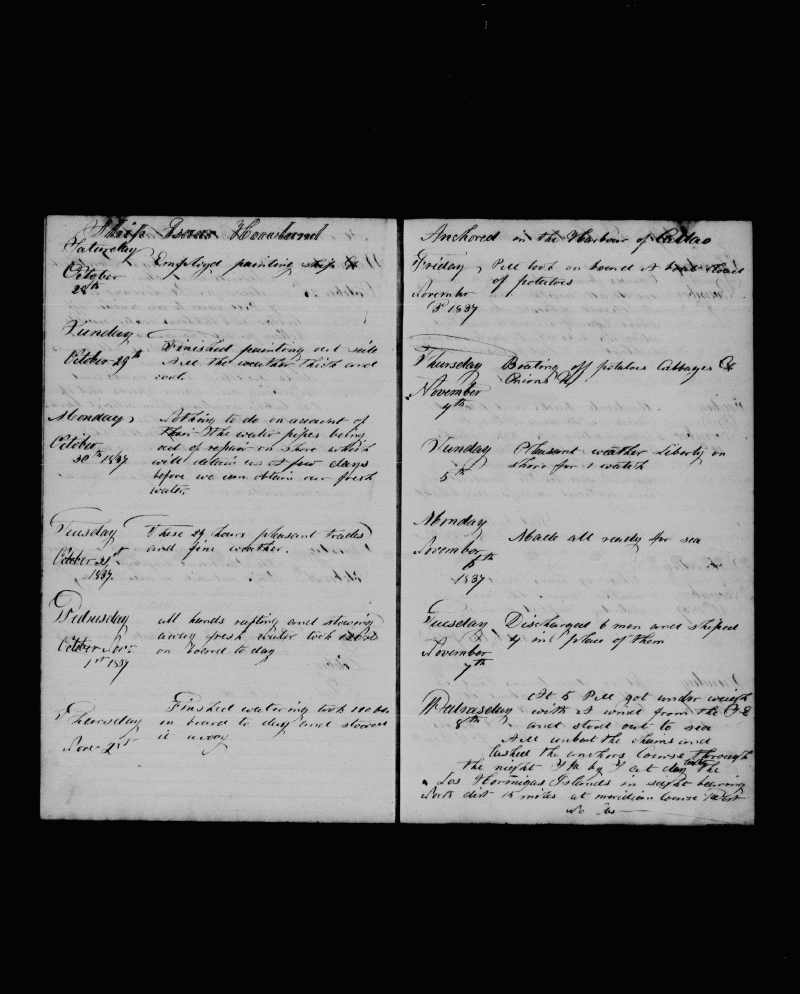 Ship Isaac Howland
Saturday
October
28th
Employd painting ship &c
Sunday
October 29th
Finished painting out side
All the weather thick and
cool.
Monday
October
30th 1837
Nothing to do on account of
the water pipes being
out of repair on shore which
will detain us A few days
before we can obtain our fresh
water.
Tuesday
October 31st
1837
These 24 hours pleasant trades
and fine weather.
Wednesday
October Nov
1st 1837
all hands rafting and stowing
away fresh water took
on board to day
Thursday
Nov 2st
Finished watering took 120 bbls
on board to day and stowed
it away
Anchored in the Harbour of Callao
Friday
November
3d 1837
P M took on board A boat load
of potatoes
Thursday
November
4th
Boating off potatoes Cabbages &
Onions &c
Sunday
5th
Pleasant weather Liberty on
shore for 1 watch
Monday
November
6th
1837
Made all ready for sea
Tuesday
November
7th
Discharged 6 men and shiped
4 in place of them
Wednesday
8th
At 5 P M got under weigh
with A wind from the S E
and stood out to sea
A M unbent the chains and
lashed the anchors Course through
the night W by at day the
Los Hormigas Islands in sight bearing
North dist 15 miles at meridian Course West
So